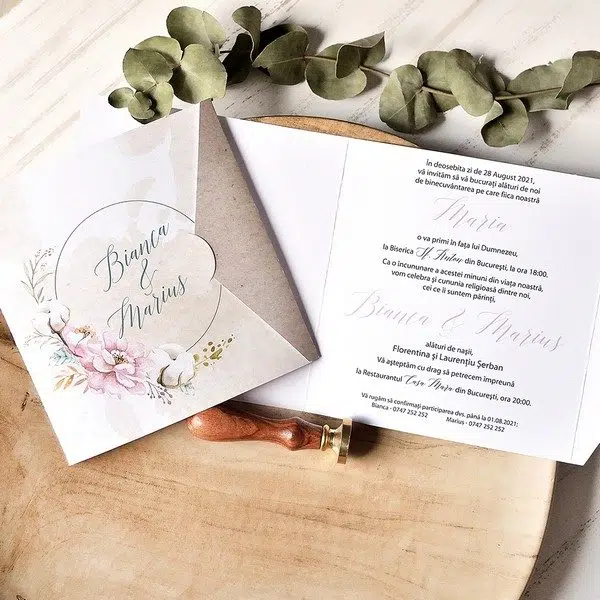 Bianca
&
Marius
În deosebita zi de 28 August 2021,
vă invităm să vă bucurați alături de noi
de binecuvântarea pe care fiica noastră
Maria
o va primi în fața lui Dumnezeu,
la Biserica Sf. Anton din București, la ora 18:00.
Ca o încununare a acestei minuni din viața noastră,
vom celebra și cununia religioasă dintre noi,
cei ce îi suntem părinți,
Bianca & Marius
alături de nașii,
Florentina și Laurențiu Șerban
Vă așteptăm cu drag să petrecem împreună
la Restaurantul Casa Mara din București, ora 20:00.
Vă rugăm să confirmați participarea dvs. până la 01.08.2021:
Bianca - 0747 252 252 Marius - 0752 252 252